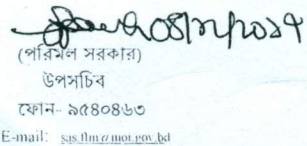 ০৪/১২/২০১৭
(পরিমল সরকার)
উপসচিব
ফোন- ৯৫৪০৪৬৩
E-mail: sas.flm@moi.gov.bd